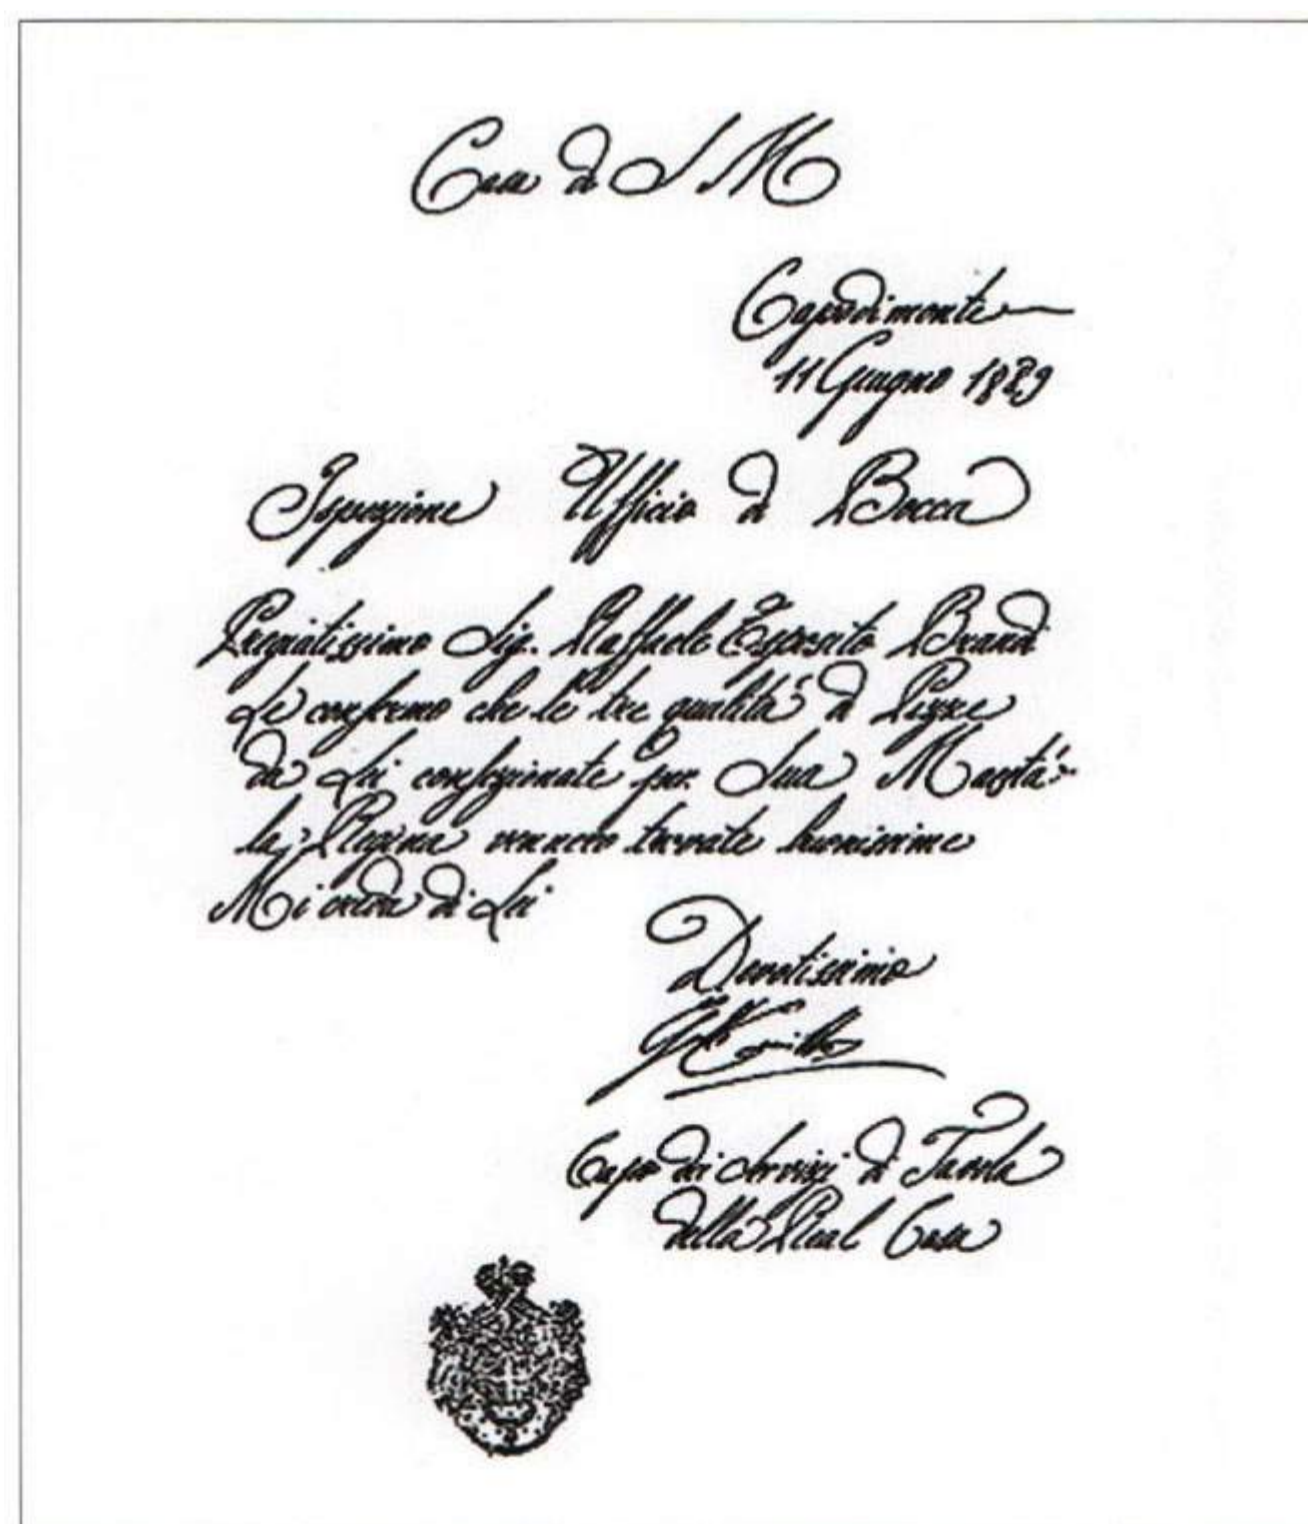 Casa di S M
Capodimonte
11 Giugno 1889
Ispezione Ufficio di Bocca
Pregiatissimo Sig. Raffaele Esposito Brandi
Le confermo che le tre qualità di Pizze
da Lei confezionate per Sua Maestà
la Regina vennero trovate buonissime
Mi creda di Lei
Devotissimo
Capo dei Servizi di Tavola
della Real Casa